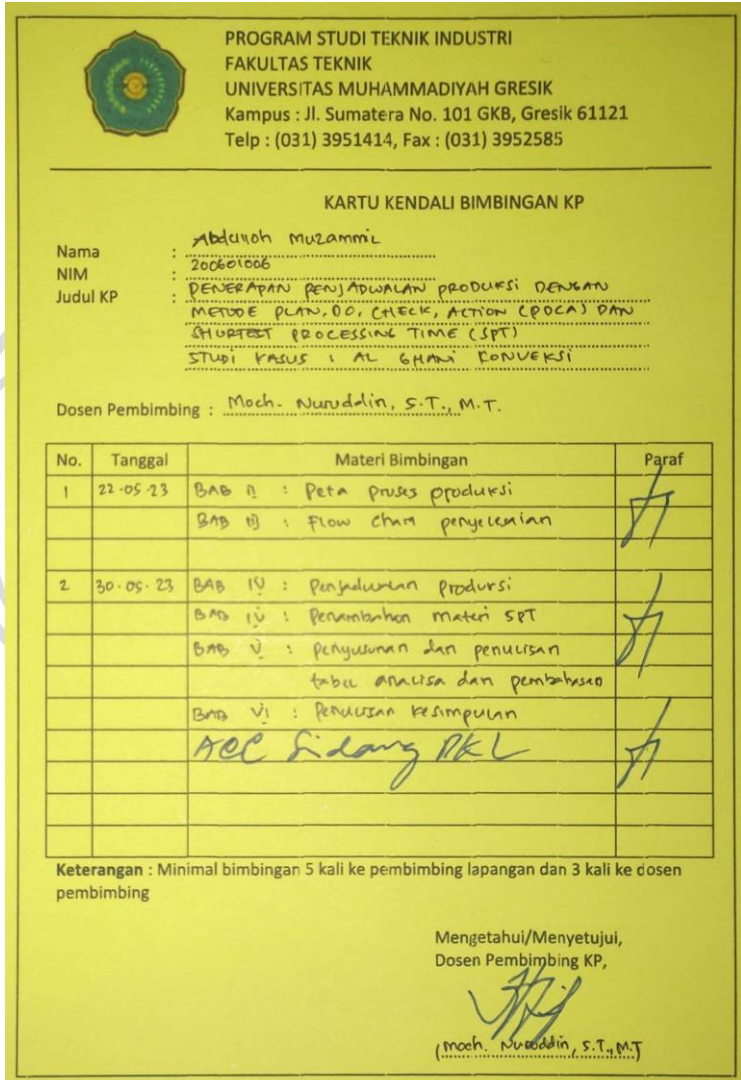 PROGRAM STUDI TEKNIK INDUSTRI
FAKULTAS TEKNIK
UNIVERSITAS MUHAMMADIYAH GRESIK
Kampus : Jl. Sumatera No. 101 GKB, Gresik 61121
Telp : (031) 3951414, Fax : (031) 3952585
KARTU KENDALI BIMBINGAN KP
Nama : Abdulloh Muzammil
NIM : 200601006
Judul KP : PENERAPAN PENJADWALAN PRODUKSI DENGAN
METODE PLAN, DO, CHECK, ACTION (PDCA) DAN
SHORTEST PROCESSING TIME (SPT)
STUDI KASUS : AL GHANI KONVEKSI
Dosen Pembimbing : Moch. Nuruddin, S.T., M.T.
No. Tanggal Materi Bimbingan Paraf
1 22-05-23 BAB II : Peta proses produksi
BAB III : Flow chart penyelesaian
2 30-05-23 BAB IV : Penjadwalan Produksi
BAB IV : Penambahan materi SPT
BAB V : Penyusunan dan penulisan
tabel analisa dan pembahasan
BAB VI : Penulisan kesimpulan
ACC Sidang PKL
Keterangan : Minimal bimbingan 5 kali ke pembimbing lapangan dan 3 kali ke dosen
pembimbing
Mengetahui/Menyetujui,
Dosen Pembimbing KP,
(Moch. Nuruddin, S.T., M.T